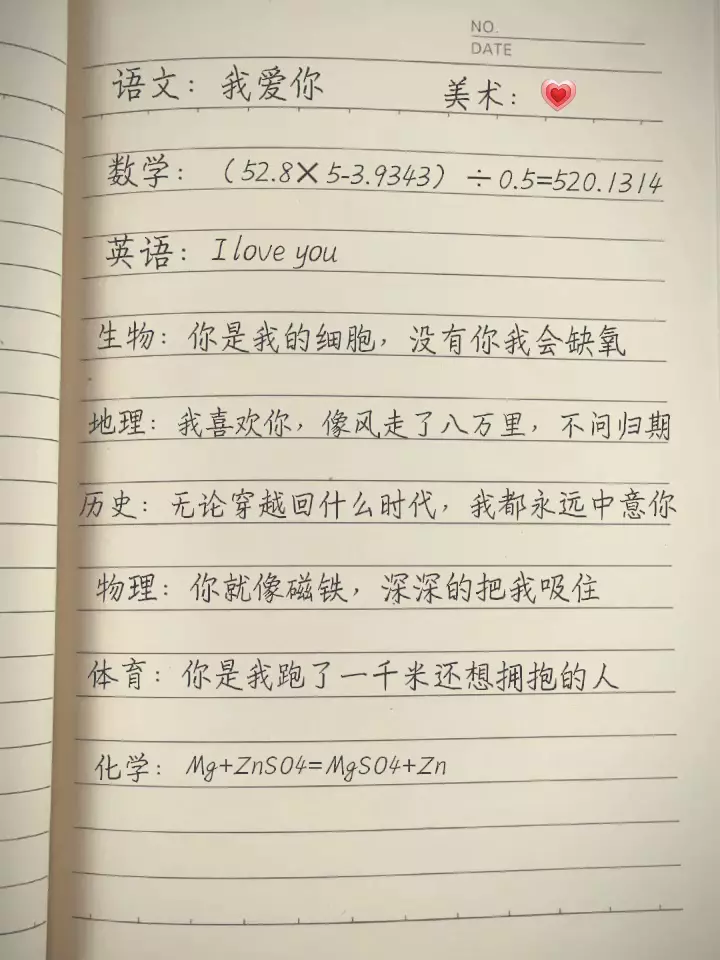 NO.
DATE
语文：我爱你 美术：💗
数学：（52.8×5-3.9343）÷0.5=520.1314
英语：I love you
生物：你是我的细胞，没有你我会缺氧
地理：我喜欢你，像风走了八万里，不问归期
历史：无论穿越回什么时代，我都永远中意你
物理：你就像磁铁，深深的把我吸住
体育：你是我跑了一千米还想拥抱的人
化学：Mg+ZnSO4=MgSO4+Zn